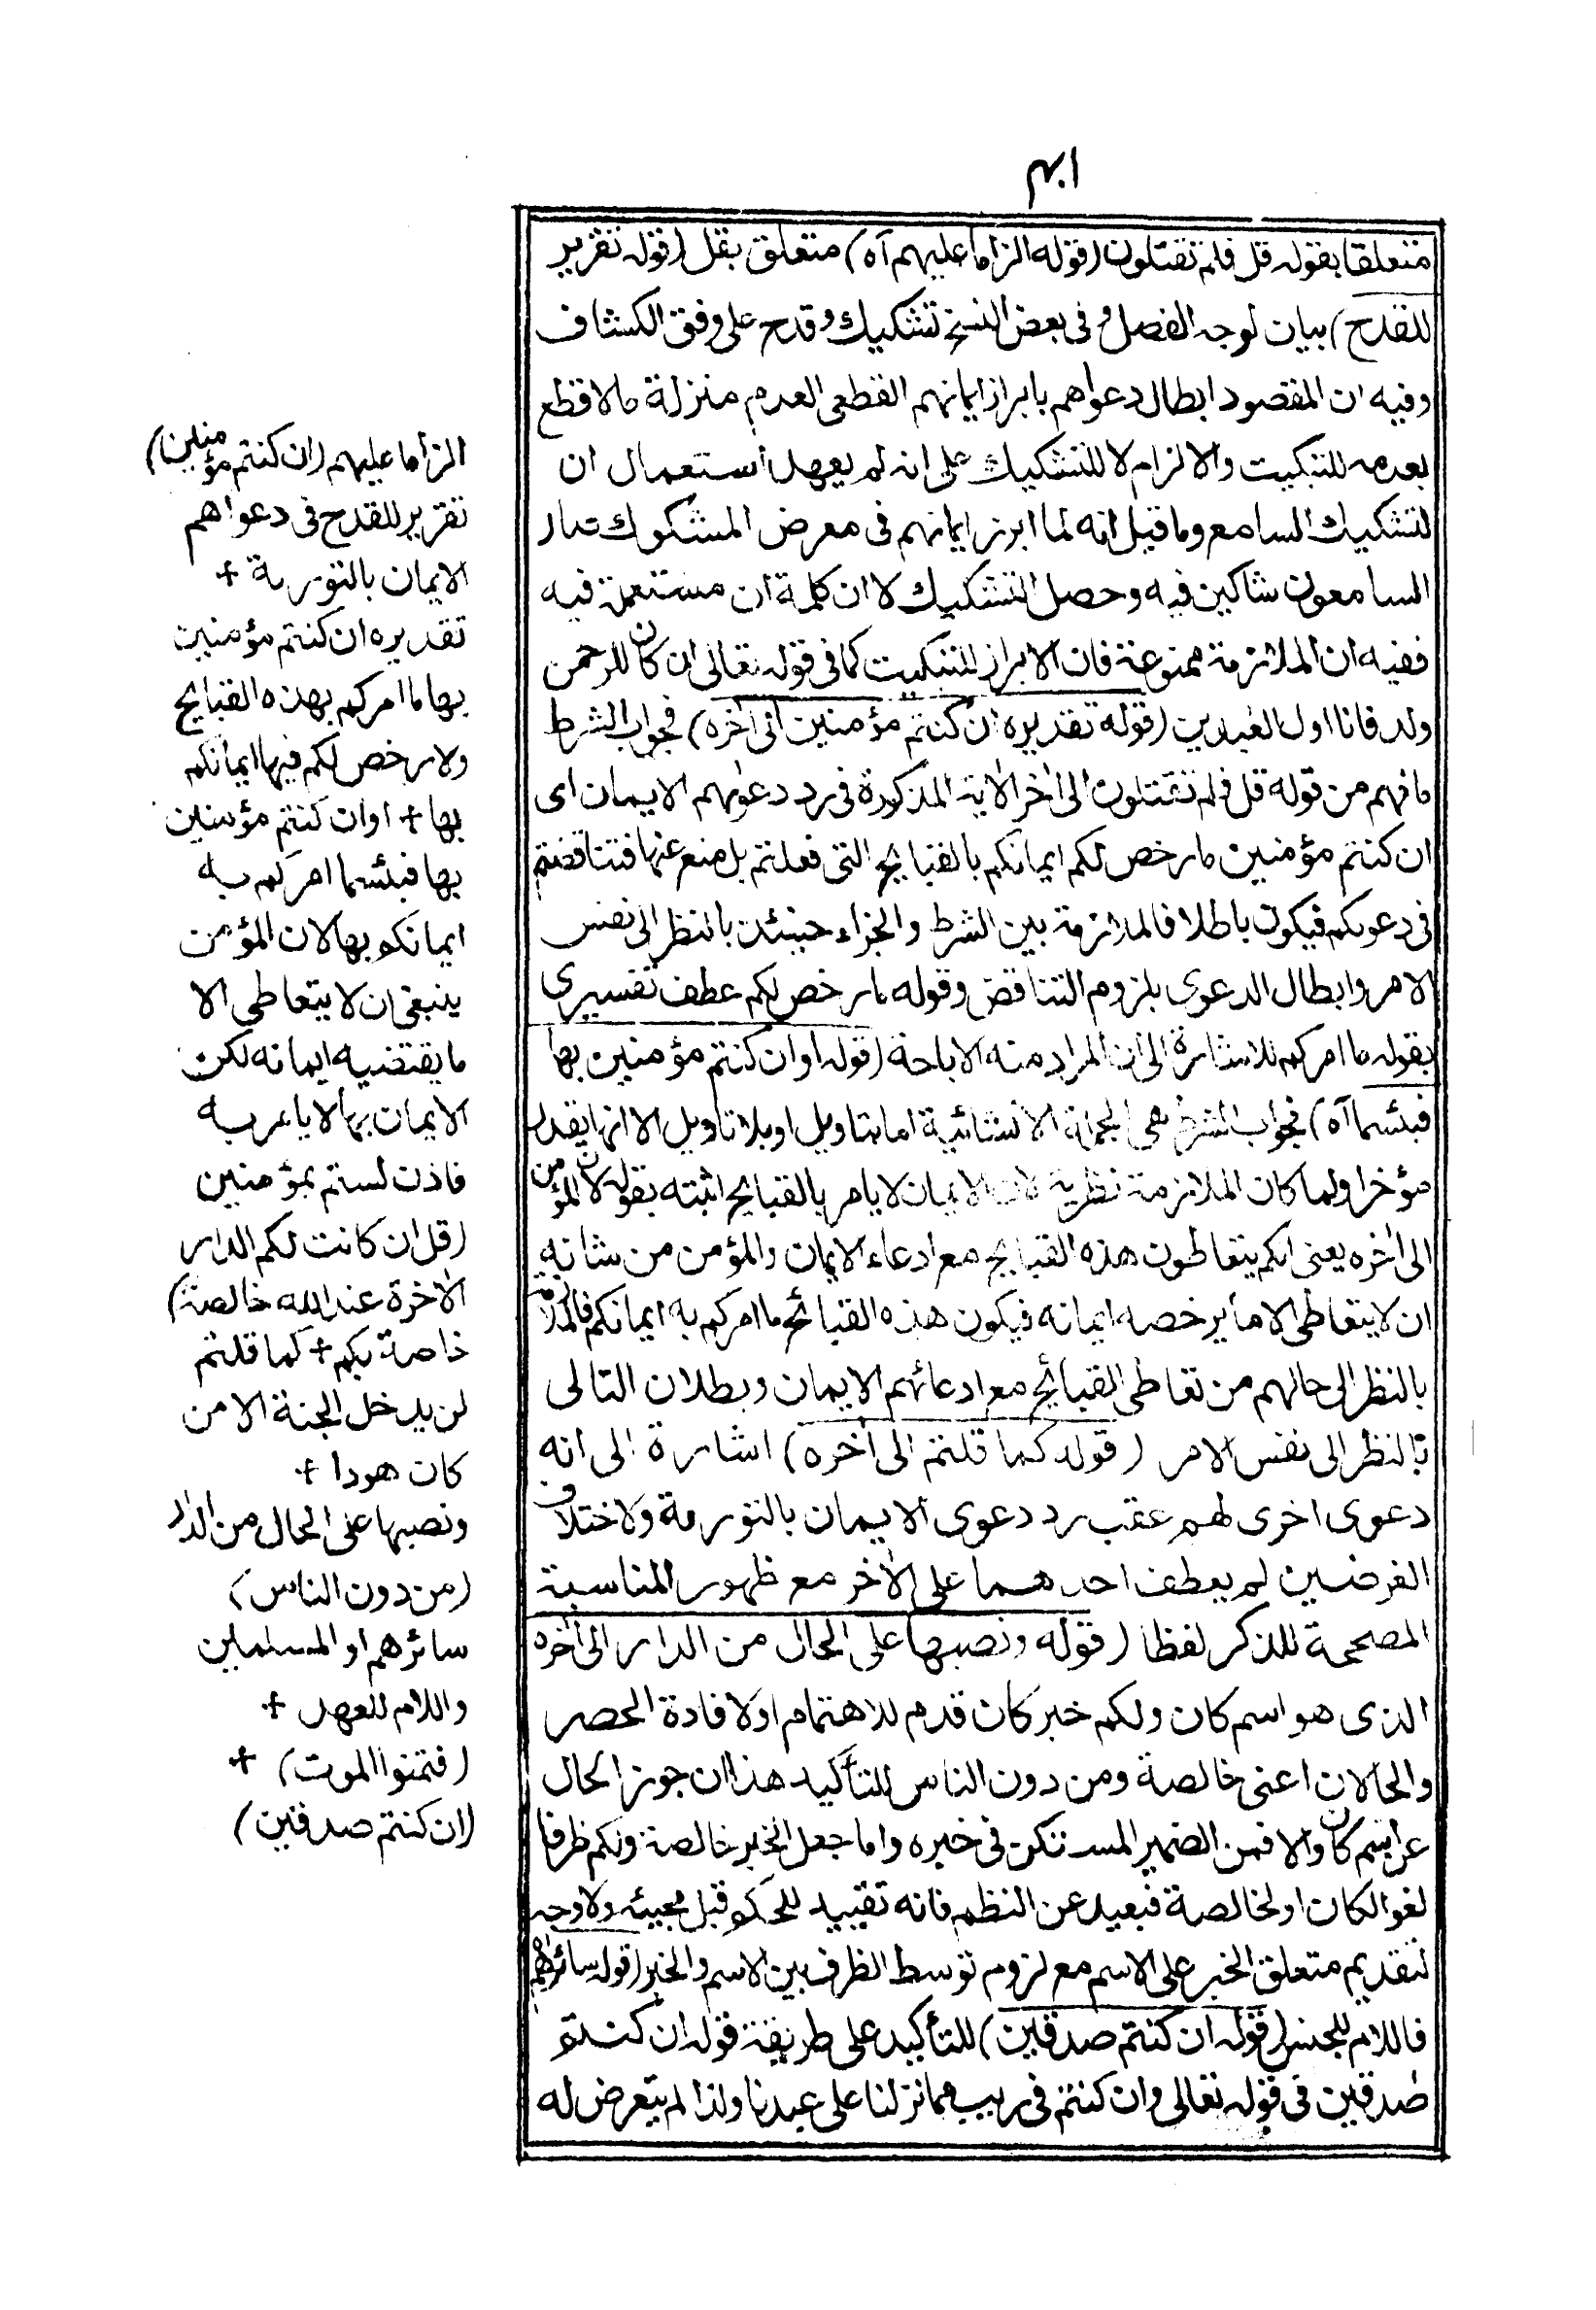 ۴۰۱
متعلقا بقوله قل فلم تقتلون (قوله الزاما عليهم آه) متعلق بقل (قوله تقرير
للقدح) بيان لوجه الفصل وفى بعض النسخ تشكيك وقدح على وفق الكشاف
وفيه ان المقصود ابطال دعواهم بابراز ايمانهم القطعى العدم منزلة مالا قطع
بعدمه للتبكيت والالزام لا للتشكيك على انه لم يعهد استعمال ان
لتشكيك السامع وما قيل انه لما ابرز ايمانهم فى معرض المشكوك صار
السامعون شاكين فيه وحصل التشكيك لا ان كلمة ان مستعملة فيه
ففيه ان الملازمة ممنوعة فان الابراز للتبكيت كما فى قوله تعالى ان كان للرحمن
ولد فانا اول العبدين (قوله تقديره ان كنتم مؤمنين الى آخره) فجواب الشرط
ما فهم من قوله قل فلم تقتلون الى اخر الاية المذكورة فى رد دعوٰهم الايمان اى
ان كنتم مؤمنين ما رخص لكم ايمانكم بالقبايح التى فعلتم بل منع عنها فتناقضتم
فى دعوٰكم فيكون باطلا فالملازمة بين الشرط والجزاء حينئذ بالنظر الى نفس
الامر وابطال الدعوى بلزوم التناقض وقوله ما رخص لكم عطف تفسيرى
بقوله ما امركم للاشارة الى ان المراد منه الاباحة (قوله او ان كنتم مؤمنين بها
فبئسما آه) فجواب الشرط هى الجملة الانشائية اما بتاويل او بلا تاويل الا انها يقدر
مؤخرا ولما كان الملازمة نظرية لان الايمان لا يامر بالقبايح اثبته بقوله لان المؤمن
الى اخره يعنى انكم يتعاطون هذه القبايح مع ادعاء الايمان والمؤمن من شانه
ان لا يتعاطى الا ما يرخصه ايمانه فيكون هذه القبائح ما امركم به ايمانكم فالملازمة
بالنظر الى حالهم من تعاطى القبائح مع ادعائهم الايمان وبطلان التالى
بالنظر الى نفس الامر (قوله كما قلتم الى آخره) اشارة الى انه
دعوى اخرى لهم عقب رد دعوى الايمان بالتورٰة ولاختلاف
الغرضين لم يعطف احدهما على الاخر مع ظهور المناسبة
المصححة للذكر لفظا (قوله ونصبها على الحال من الدار الى آخره
الذى هو اسم كان ولكم خبر كان قدم للاهتمام او لافادة الحصر
والحالان اعنى خالصة ومن دون الناس للتأكيد هذا ان جوز الحال
عن اسم كان والا فمن الضمير المستكن فى خبره واما جعل الخبر خالصة ولكم ظرفا
لغوا لكان او لخالصة فبعيد عن النظم فانه تقييد للحكم قبل مجيئه ولا وجه
لتقديم متعلق الخبر على الاسم مع لزوم توسط الظرف بين الاسم والخبر (قوله سائرهم
فاللام للجنس (قوله ان كنتم صدقين) للتأكيد على طريقة قوله ان كنتم
صدقين فى قوله تعالى وان كنتم فى ريب مما نزلنا على عبدنا ولذا لم يتعرض له
الزاما عليهم (ان كنتم مؤمنين)
تقرير للقدح فى دعواهم
الايمان بالتورٰية +
تقديره ان كنتم مؤمنين
بها ما امركم بهذه القبايح
ولا رخص لكم فيها ايمانكم
بها + او ان كنتم مؤمنين
بها فبئسما امركم به
ايمانكم بها لان المؤمن
ينبغى ان لا يتعاطى الا
ما يقتضيه ايمانه لكن
الايمان بها لا يامر به
فاذن لستم بمؤمنين
(قل ان كانت لكم الدار
الاخرة عند الله خالصة)
خاصة بكم + كما قلتم
لن يدخل الجنة الا من
كان هودا +
ونصبها على الحال من الدار
(من دون الناس)
سائرهم او المسلمين
واللام للعهد +
(فتمنوا الموت) +
(ان كنتم صدقين)